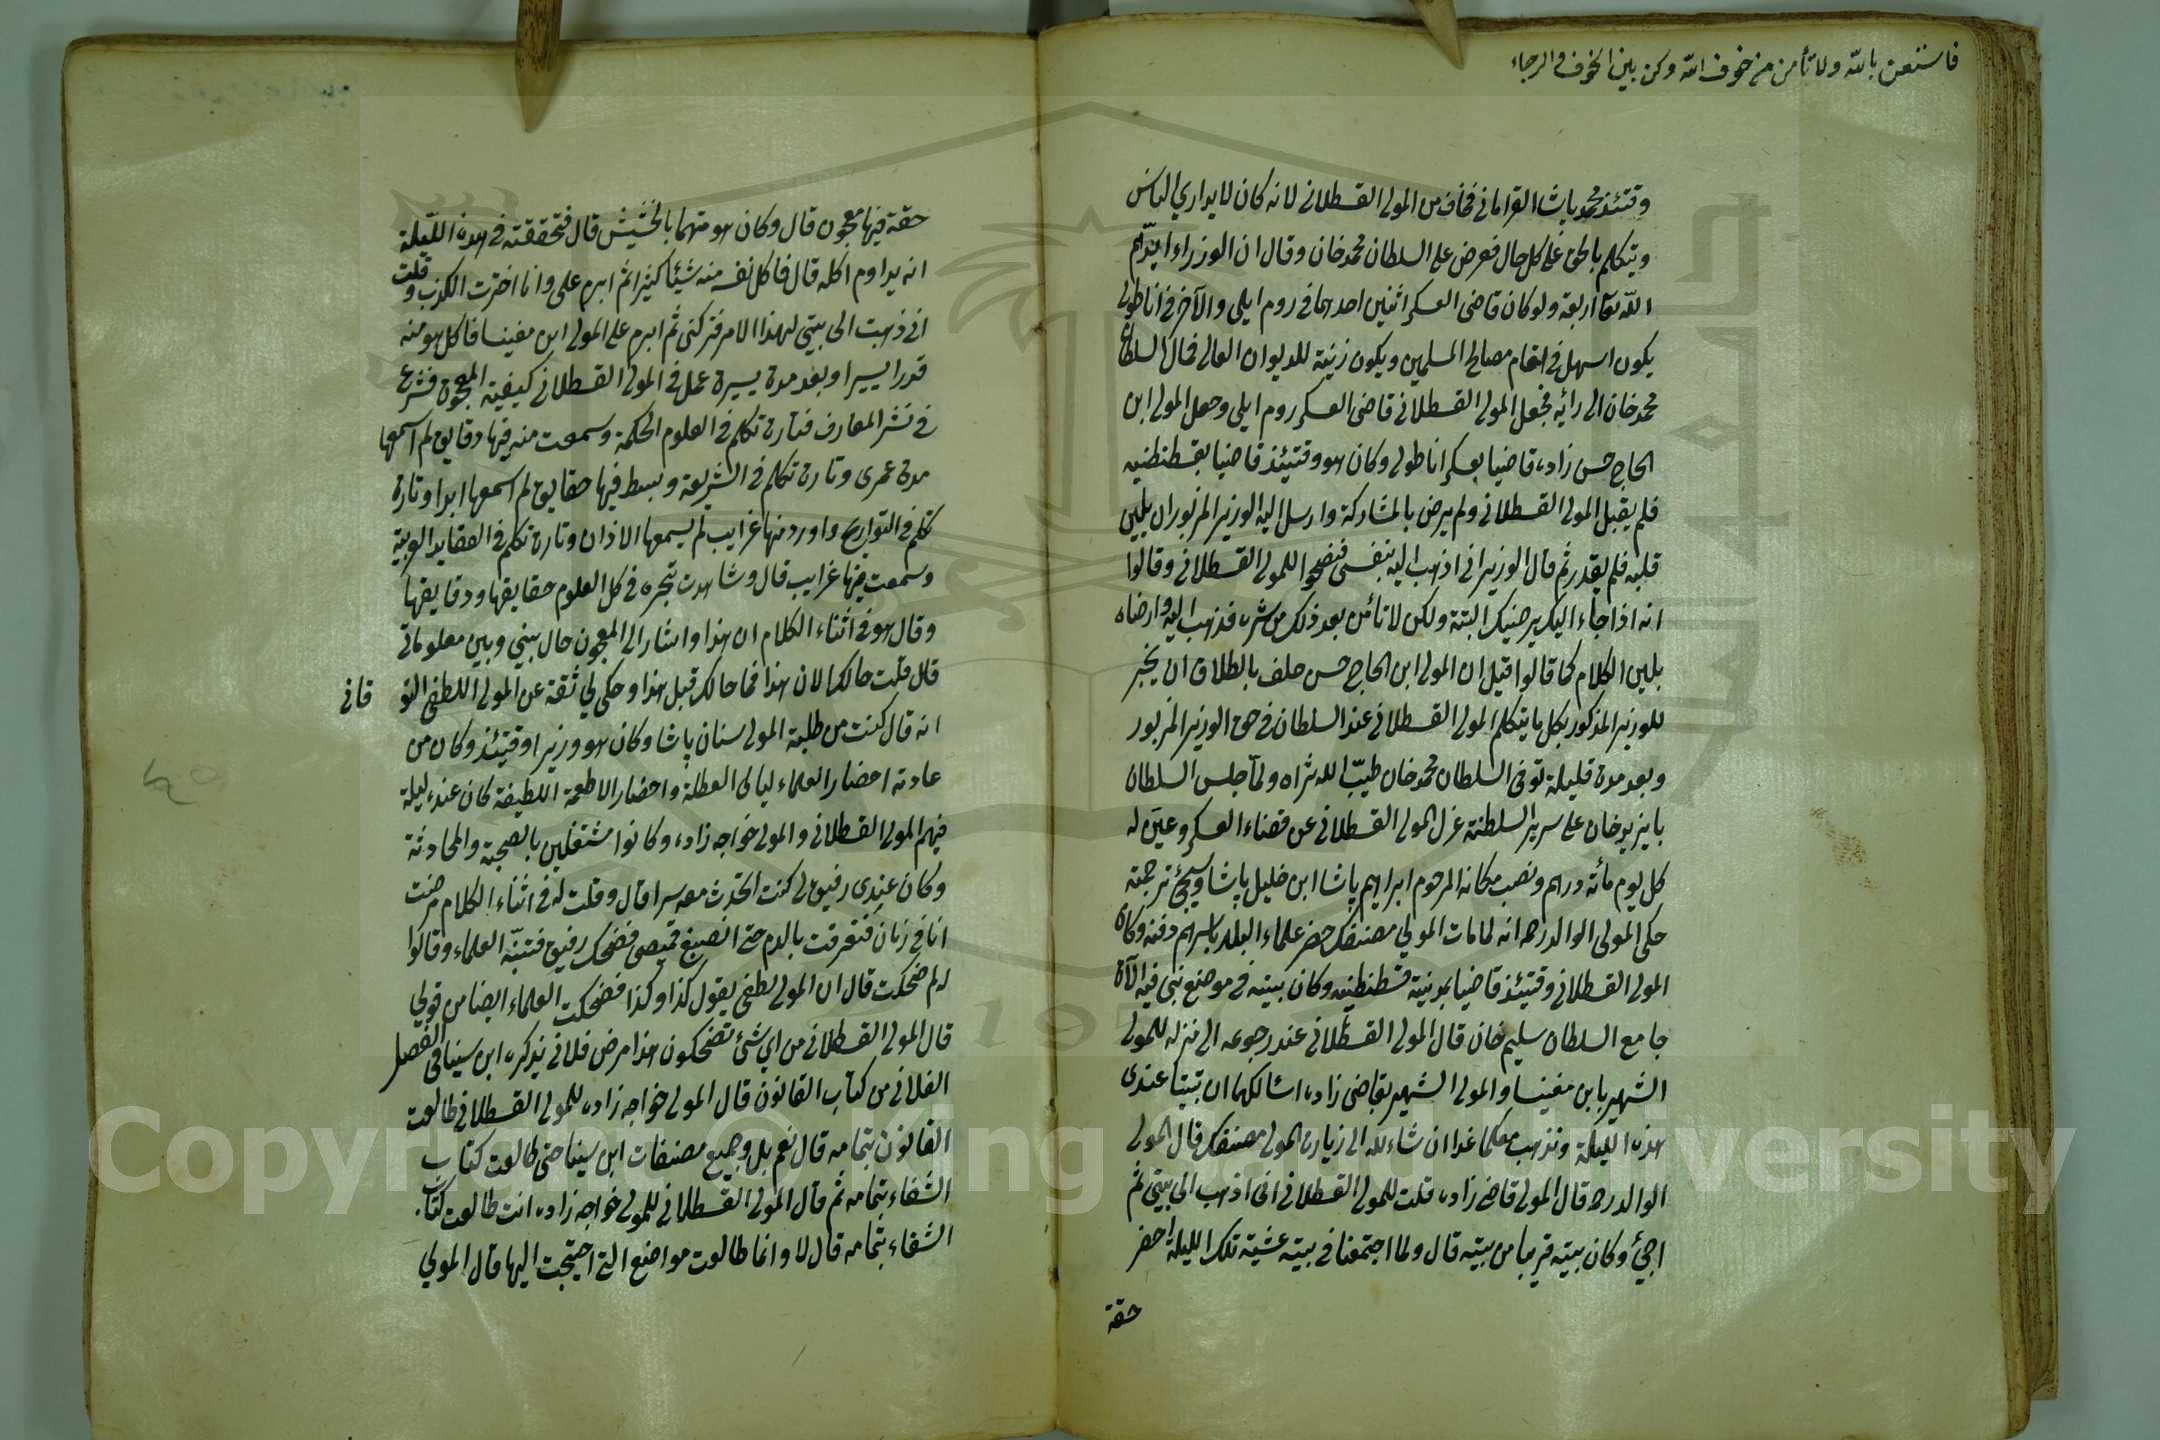 فاستعن بالله ولا تأمن من خوف الله وكن بين الخوف والرجاء
وقتئذ محمد باشا القرامانى فخاف من المولى القسطلانى لانه كان لا يدارى الناس
ويتكلم بالحق على كل حال فعرض على السلطان محمد خان وقال ان الوزراء ايدهم
الله تعا اربعة ولو كان قاضى العسكر اثنين احدهما فى روم ايلى والآخر فى اناطولى
يكون اسهل فى اتمام مصالح المسلمين ويكون زينة للديوان العالى فمال السلطان
محمد خان الى رأيه فجعل المولى القسطلانى قاضى العسكر روم ايلى وجعل المولى ابن
الحاج حسن زاده قاضيا بعسكر اناطولى وكان هو وقتيئذ قاضيا بقسطنطنيه
فلم يقبل المولى القسطلانى ولم يرض بالمشاركة وارسل اليه الوزير المزبور ان يلين
قلبه فلم يقدر ثم قال الوزير انى اذهب اليه بنفسى فنصحوا للمولى القسطلانى وقالوا
انه اذا جاء اليك يرضيك البتة ولكن لا تأمن بعد ذلك من شره فذهب اليه وارضاه
بلين الكلام كما قالوا قيل ان المولى ابن الحاج حسن حلف بالطلاق ان يخبر
للوزير المذكور بكل ما يتكلم المولى القسطلانى عند السلطان فى حق الوزير المزبور
وبعد مدة قليلة توفى السلطان محمد خان طيب الله ثراه ولما جلس السلطان
بايزيد خان على سرير السلطنة عزل المولى القسطلانى عن قضاء العسكر وعين له
كل يوم مأته درهم ونصب مكانه المرحوم ابراهيم پاشا ابن خليل پاشا وسيجئ ترجمته
حكى المولى الوالد رحمه انه لما مات المولى مصنفك حضر علماء البلد باسرهم دفنه وكان
المولى القسطلانى وقتيئذ قاضيا بمدينة قسطنطنيه وكان بيته فى موضع بنى فيه الآن
جامع السلطان سليم خان قال المولى القسطلانى عند رجوعه الى منزله للمولى
الشهير بابن مغنيسا والمولى الشهير بقاضى زاده اسألكما ان تبيتا عندى
هذه الليلة ونذهب معكما غدا ان شاء لله الى زيارة المولى مصنفك قال المولى
الوالد رحه قال المولى قاضى زاده قلت للمولى القسطلانى انى اذهب الى بيتى ثم
اجئ وكان بيته قريبا من بيته قال ولما اجتمعنا فى بيته عشية تلك الليلة احضر
حقة
حقة فيها معجون قال وكان هو متهما بالحشيش قال فتحققته فى هذه الليلة
انه يداوم اكله قال فاكل نفسه منه شيئا كثيرا ثم ابرم على وانا اخترت الكذب وقلت
انى ذهبت الى بيتى لهذا الامر فتركنى ثم ابرم على المولى ابن مغنيسا فاكل هو منه
قدرا يسيرا وبعد مدة يسيرة عمل فى المولى القسطلانى كيفية المعجون فشرع
فى نشر المعارف فتارة تكلم فى العلوم الحكمة وسمعت منه فيها دقايق لم اسمعها
مدة عمرى وتارة تكلم فى الشريعة وبسط فيها حقايق لم اسمعها ابدا وتارة
تكلم فى التواريخ واورد منها غرايب لم يسمعها الاذان وتارة تكلم فى القصايد العربية
وسمعت منها غرايب قال وشاهدت تبحره فى كل العلوم حقايقها ودقايقها
وقال هو فى اثناء الكلام ان هذا واشار الى المعجون حال بينى وبين معلوماتى
قال قلت حالكما لان هذا فما حالك قبل هذا وحكى لى ثقة عن المولى اللطفى التو
قانى
انه قال كنت من طلبة المولى سنان پاشا وكان هو وزيرا وقتيئذ وكان من
عادته احضار العلماء ليالى العطلة واحضار الاطعمة اللطيفة كان عنده ليلة
فيهم المولى القسطلانى والمولى خواجه زاده وكانوا مشتغلين بالصحبة والمحادثة
وكان عندى رفيق لى كنت اتحدث معه سرا قال وقلت له فى اثناء الكلام مرضت
انا فى زمان فتعرقت بالدم حتى انصبغ قميصى فضحك رفيق فتنبه العلماء وقالوا
له لم ضحكت قال ان المولى لطفى يقول كذا وكذا فضحكت العلماء ايضا من قولى
قال المولى القسطلانى من اى شئ تضحكون هذا مرض فلانى يذكره ابن سينا فى الفصل
الفلانى من كتاب القانون قال المولى خواجه زاده للمولى القسطلانى طالعت
القانون بتمامه قال نعم بل وجميع مصنفات ابن سينا حتى طالعت كتاب
الشفاء بتمامه ثم قال المولى القسطلانى للمولى خواجه زاده انت طالعت كتاب
الشفاء بتمامه قال لا وانما طالعت مواضع التى احتجت اليها قال المولى
Copyright © King Saud University